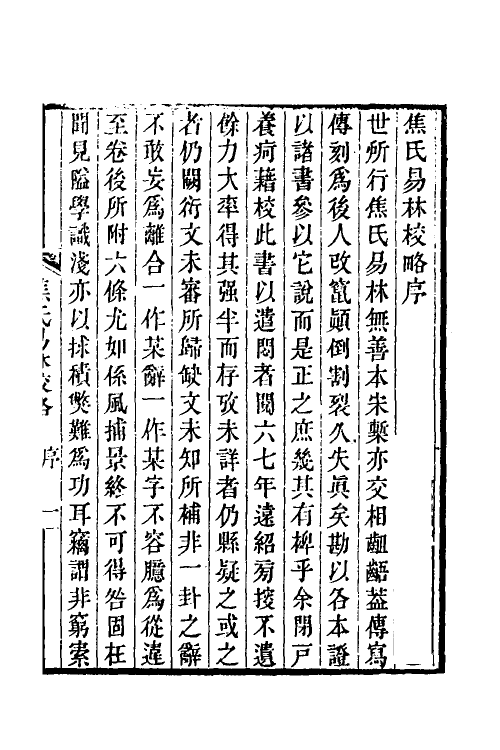 焦氏易林校略序
世所行焦氏易林無善本朱槧亦交相齟齬葢傳寫
傳刻爲後人改竄顚倒割裂久失眞矣勘以各本證
以諸書參以它說而是正之庶幾其有裨乎余閉戸
養疴藉校此書以遣悶者閱六七年遠紹旁搜不遺
餘力大率得其强半而存攷未詳者仍縣疑之或之
者仍闕衍文未審所歸缺文未知所補非一卦之辭
不敢妄爲離合一作某辭一作某字不容臆爲從違
至卷後所附六條尤如係風捕景終不可得咎固在
聞見隘學識淺亦以捄積獘難爲功耳竊謂非窮索
焦氏易林校略
序
一